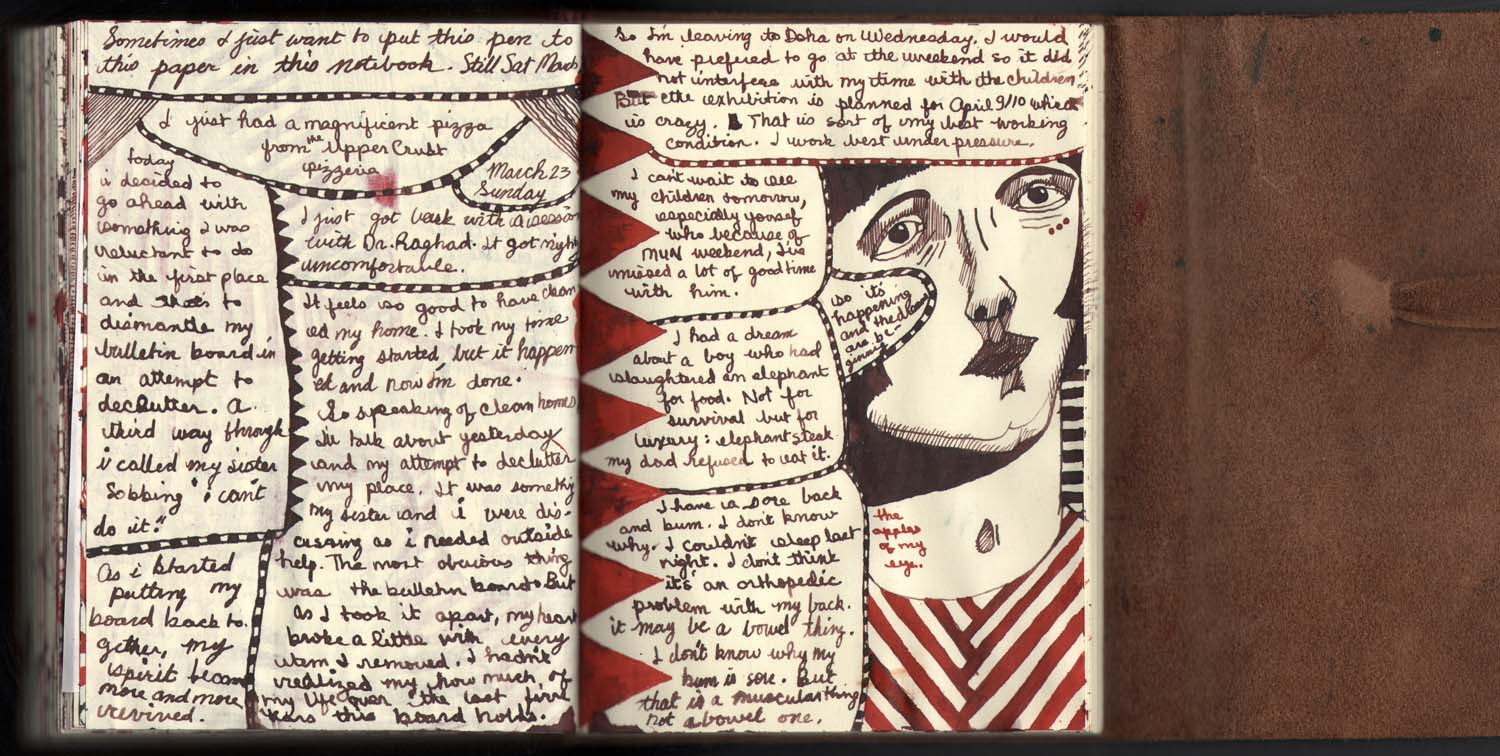 Sometimes I just want to put this pen to
this paper in this notebook. Still Sat March
I just had a magnificent pizza
from the Upper Crust
pizzeria
March 23
Sunday
today
i decided to
go ahead with
something I was
reluctant to do
in the first place
and that's to
dismantle my
bulletin board in
an attempt to
declutter. A
third way through
i called my sister
sobbing "i can't
do it."
As i started
putting my
board back to
gether, my
spirit becam
more and more
revived.
I just got back with a session
with Dr. Raghad. It got right
uncomfortable.
It feels so good to have clean
ed my home. I took my time
getting started, but it happen
ed and now I'm done.
So speaking of clean homes
I'll talk about yesterday
and my attempt to declutter
my place. It was somethig
my sister and i were dis-
cussing as i needed outside
help. The most obvious thing
was the bulletin board. But
as I took it apart, my heart
broke a little with every
item I removed. I hadn't
realized my how much of
my life over the last five
years this board holds.
So I'm leaving to Doha on Wednesday. I would
have prefered to go at the weekend so it did
not interfere with my time with the children
But the exhibition is planned for April 9/10 which
is crazy. That is sort of my best working
condition. I work best under pressure.
I can't wait to see
my children tomorrow,
especially yousef
who because of
MUN weekend, I've
missed a lot of good time
with him.
so it's
happening
and the
are be-
I had a dream
about a boy who had
slaughtered an elephant
for food. Not for
survival but for
luxury: elephant steak
my dad refused to eat it.
I have a sore back
and bum. I don't know
why. I couldn't sleep last
night. I don't think
it's an orthopedic
problem with my back.
it may be a bowel thing.
I don't know why my
bum is sore. But
that is a muscular thing
not a bowel one.
the
apples
of my
eye.